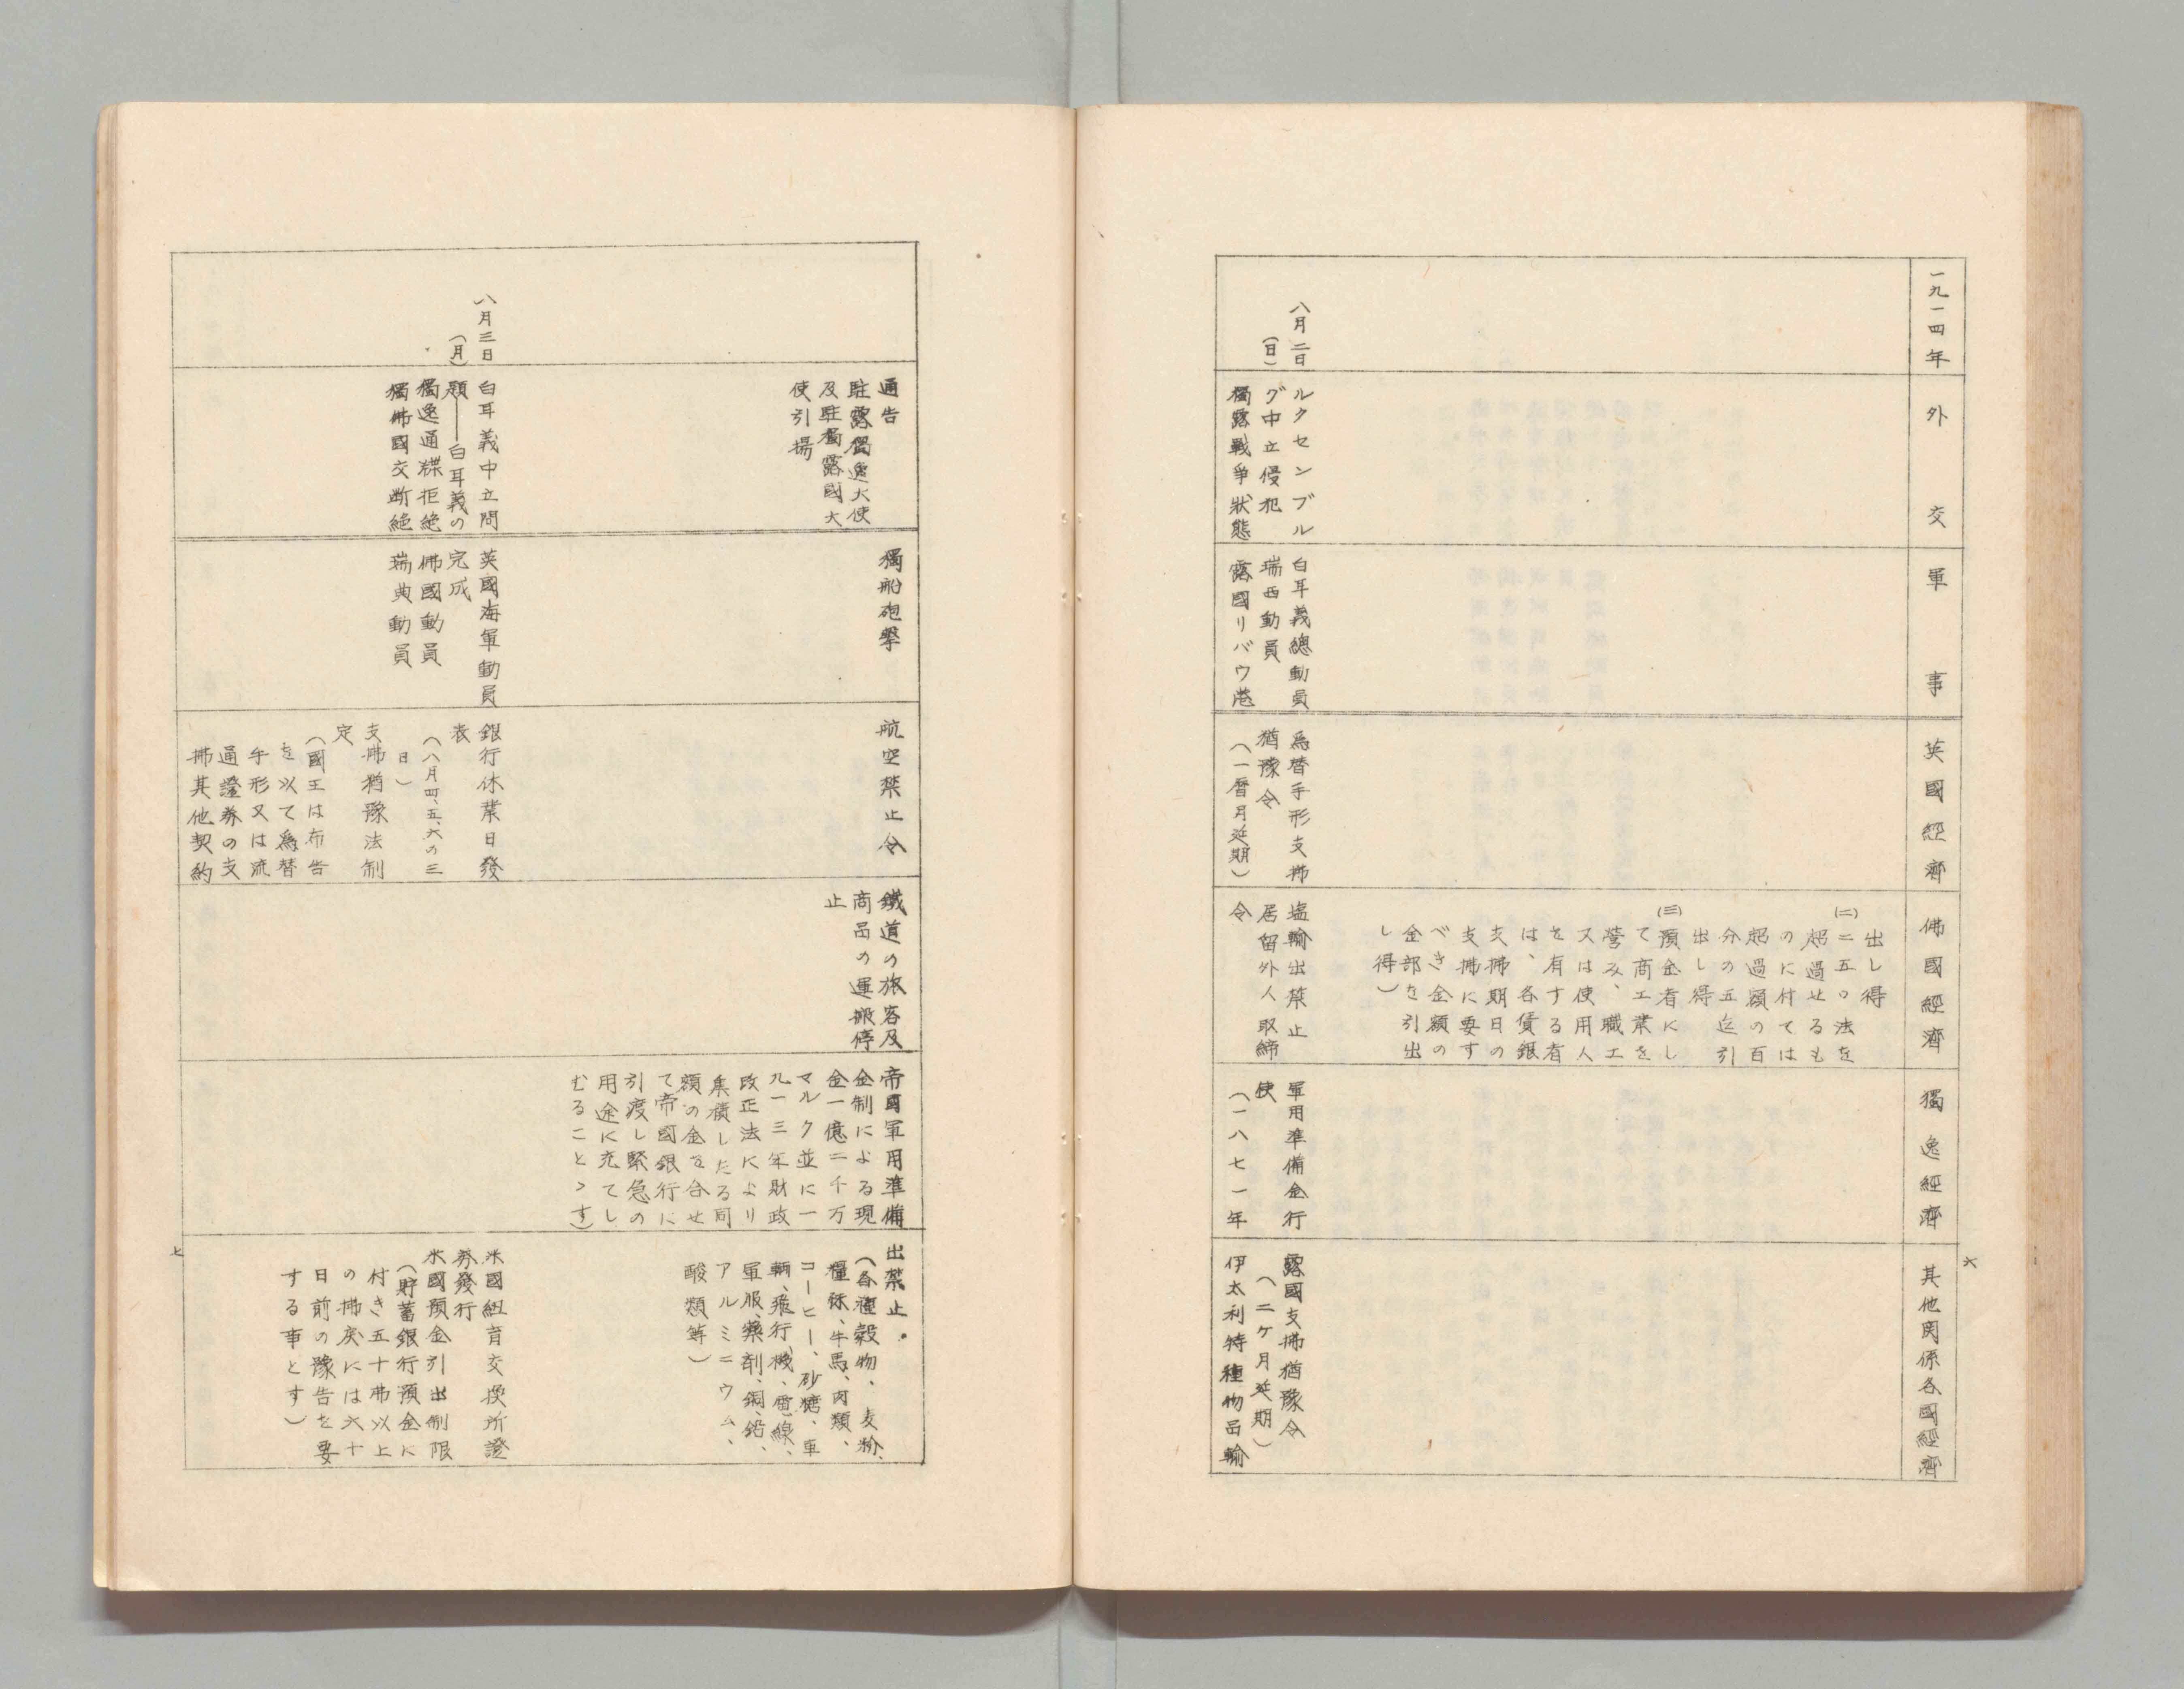 六
一九一四年
外交
軍事
英國經濟
佛國經濟
獨逸經濟
其他関係各國經濟
出し得
(二)二五〇法を
超過せるも
のに付ては
超過額の百
分の五迄引
出し得
(三)預金者にし
て商工業を
営み、職工
又は使用人
を有する者
は、各賃銀
支拂期日の
支拂に要す
べき金額の
全部を引出
し得)
八月二日
(日)
ルクセンブル
グ中立侵犯
獨露戰爭狀態
白耳義總動員
瑞西動員
露國リバウ港
爲替手形支拂
猶豫令
(一曆月延期)
塩輸出禁止
居留外人取締
令
軍用準備金行
使
(一八七一年
露國支拂猶豫令
(二ケ月延期)
伊太利特種物品輸
通告
駐露獨逸大使
及駐獨露國大
使引揚
獨船砲擊
航空禁止令
鐵道の旅客及
商品の運搬停
止
帝國軍用準備
金制による現
金一億二千万
マルク並に一
九一三年財政
改正法により
集積したる同
額の金を合せ
て帝國銀行に
引渡し緊急の
用途に充てし
むることゝす)
出禁止。
(各種穀物、麦粉、
糧秣、牛馬、肉類、
コーヒー、砂糖、車
輌、飛行機、電線、
軍服、藥剤、銅、鉛、
アルミニウム、
酸類等)
八月三日
(月)
白耳義中立問
題――白耳義の
獨逸通牒拒絶
獨佛國交断絶
英國海軍動員
完成
佛國動員
瑞典動員
銀行休業日發
表
(八月四、五、六の三
日)
支拂猶豫法制
定
(國王は布告
を以て爲替
手形又は流
通證券の支
拂其他契約
米國紐育交換所證
券發行
米國預金引出制限
(貯蓄銀行預金に
付き五十弗以上
の拂戻には六十
日前の豫告を要
する事とす)
七